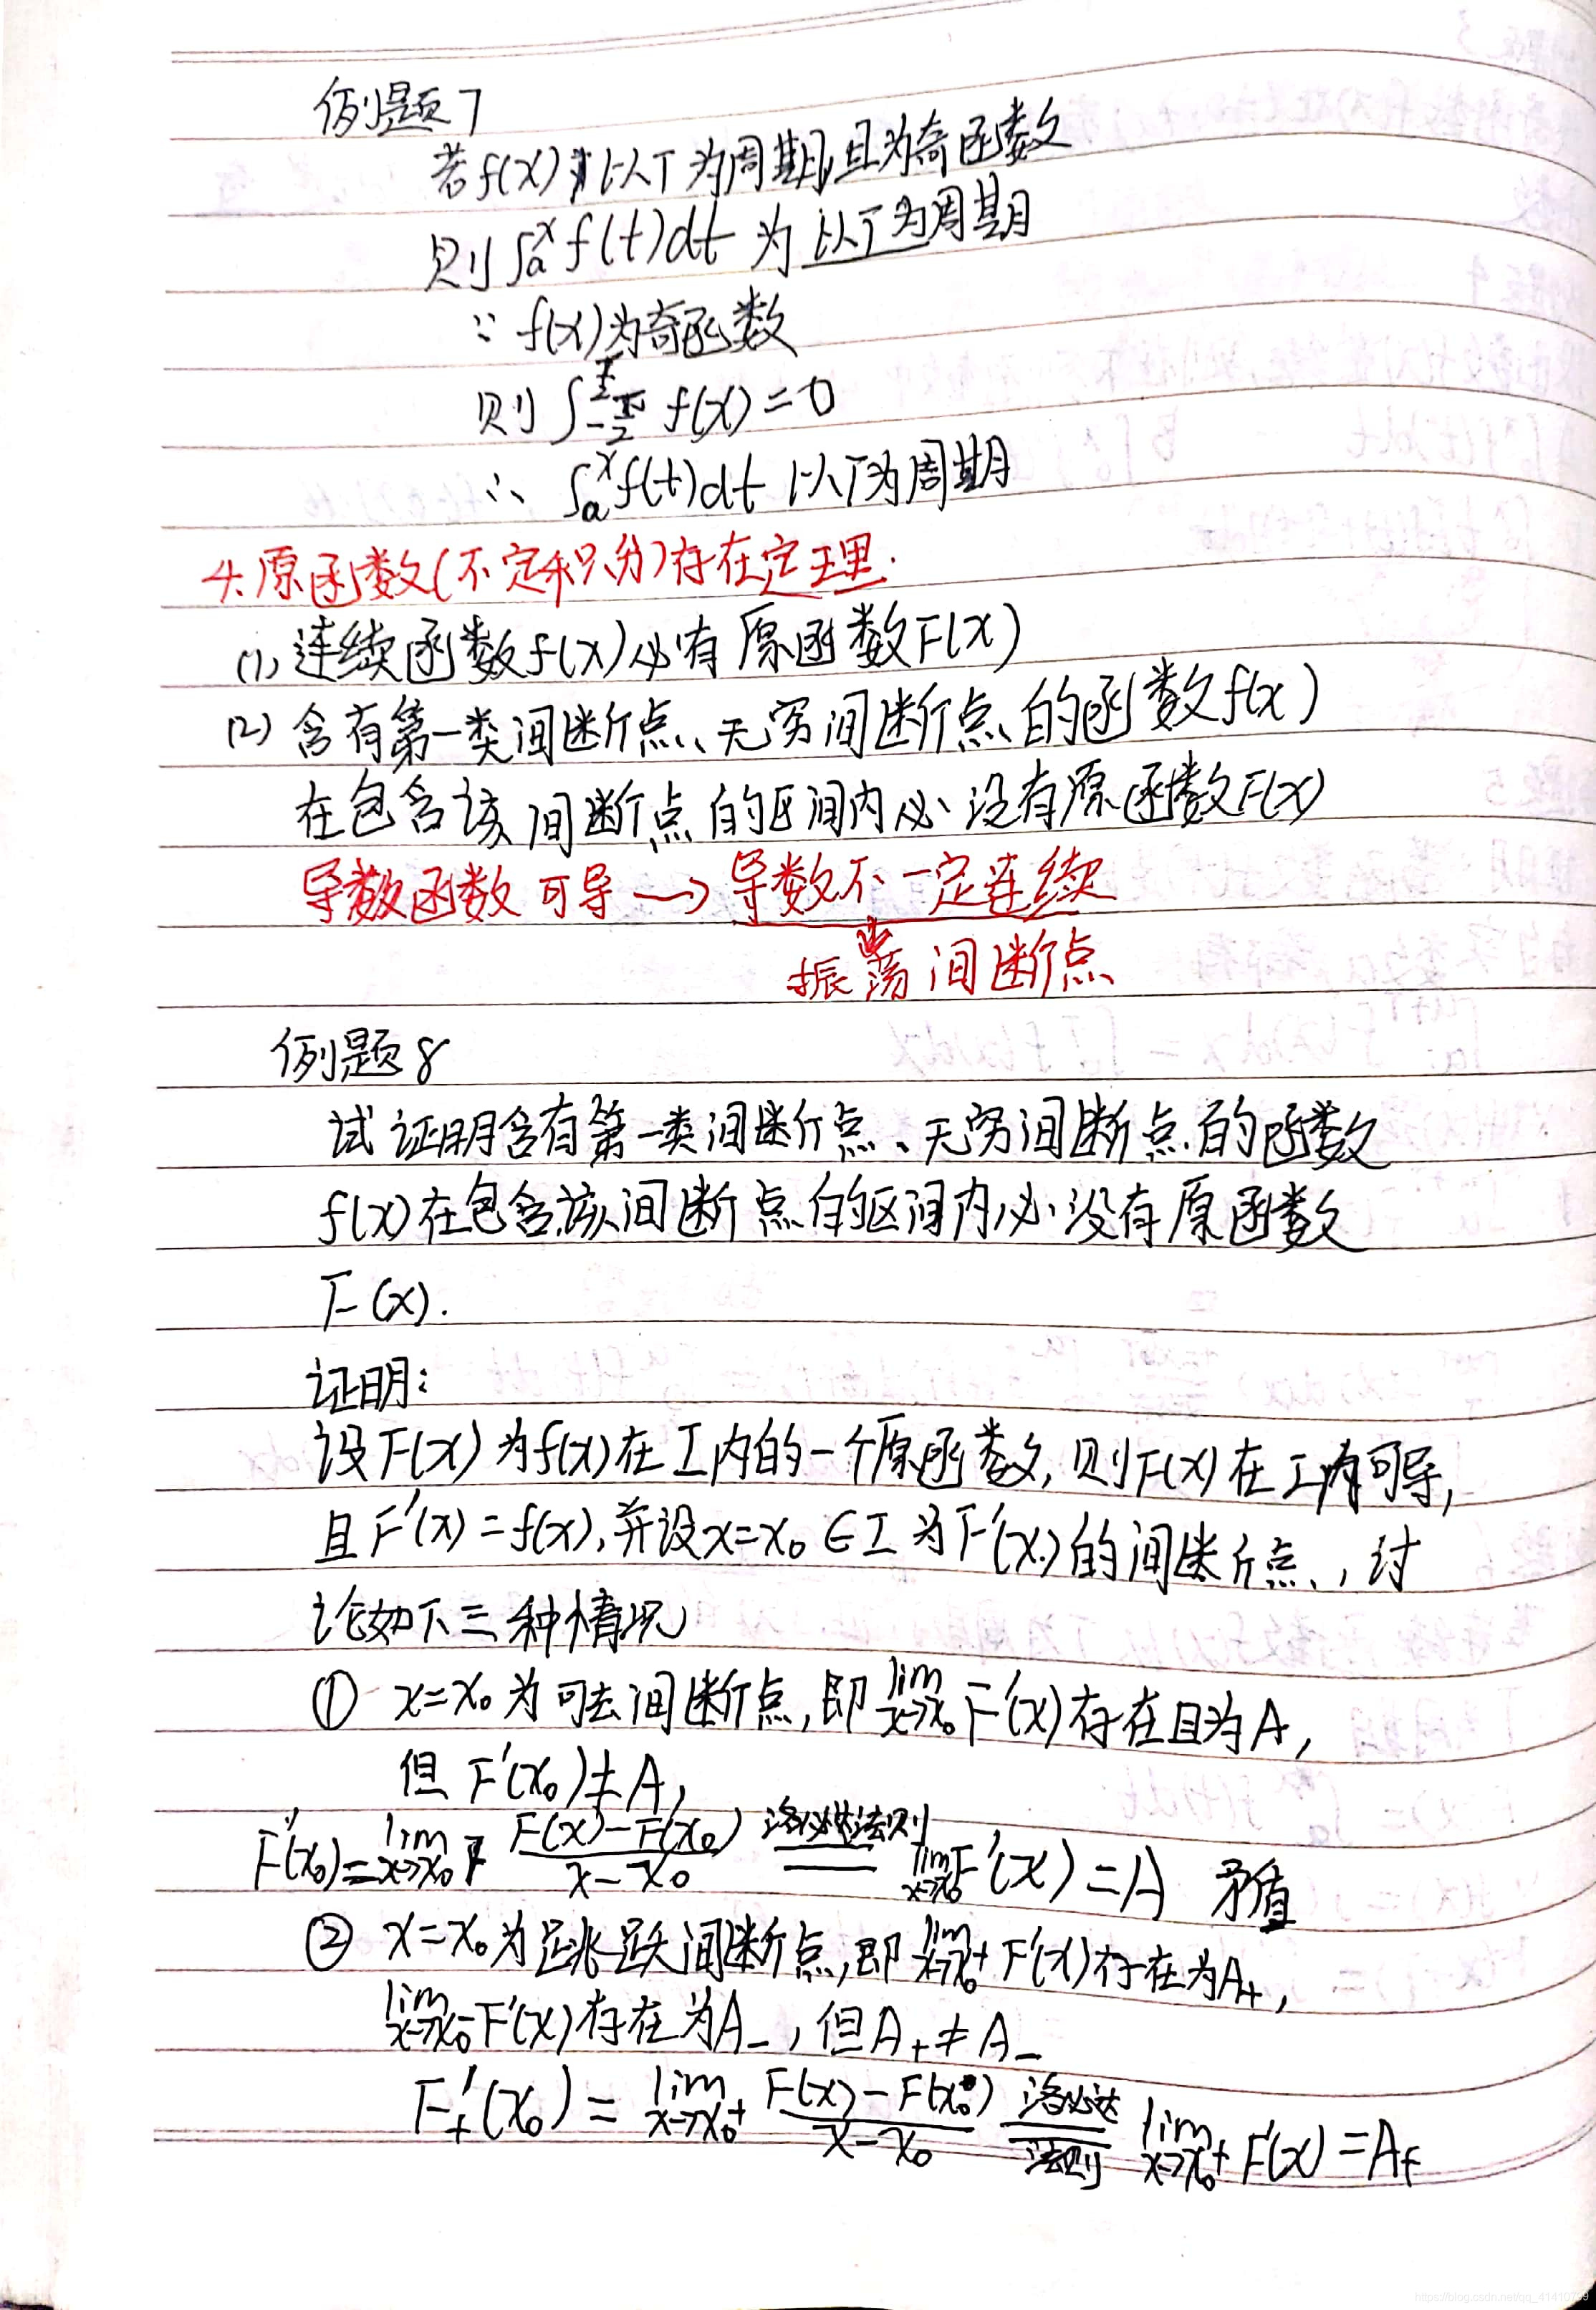 例题7
若f(x)以T为周期,且为奇函数
则∫ₐˣf(t)dt 为 以T为周期
∵ f(x)为奇函数
则 ∫_{-T/2}^{T/2} f(x)=0
∴ ∫ₐˣf(t)dt 以T为周期
4.原函数(不定积分)存在定理.
(1)连续函数f(x)必有原函数F(x)
(2)含有第一类间断点、无穷间断点的函数f(x)
在包含该间断点的区间内必没有原函数F(x)
导数函数可导→导数不一定连续
振荡间断点
例题8
试证明含有第一类间断点、无穷间断点的函数
f(x)在包含该间断点的区间内必没有原函数
F(x).
证明:
设F(x)为f(x)在I内的一个原函数,则F(x)在I内可导,
且F'(x)=f(x),并设x=x₀∈I为F'(x)的间断点,讨
论如下三种情况
① x=x₀为可去间断点,即lim_{x→x₀}F'(x)存在且为A,
但 F'(x₀)≠A,
F'(x₀)=lim_{x→x₀} (F(x)-F(x₀))/(x-x₀) 洛必达法则== lim_{x→x₀}F'(x)=A 矛盾
② x=x₀为跳跃间断点,即lim_{x→x₀⁺}F'(x)存在为A₊,
lim_{x→x₀⁻}F'(x)存在为A₋,但A₊≠A₋
F₊'(x₀)=lim_{x→x₀⁺} (F(x)-F(x₀))/(x-x₀) 洛必达法则== lim_{x→x₀⁺}F'(x)=A₊